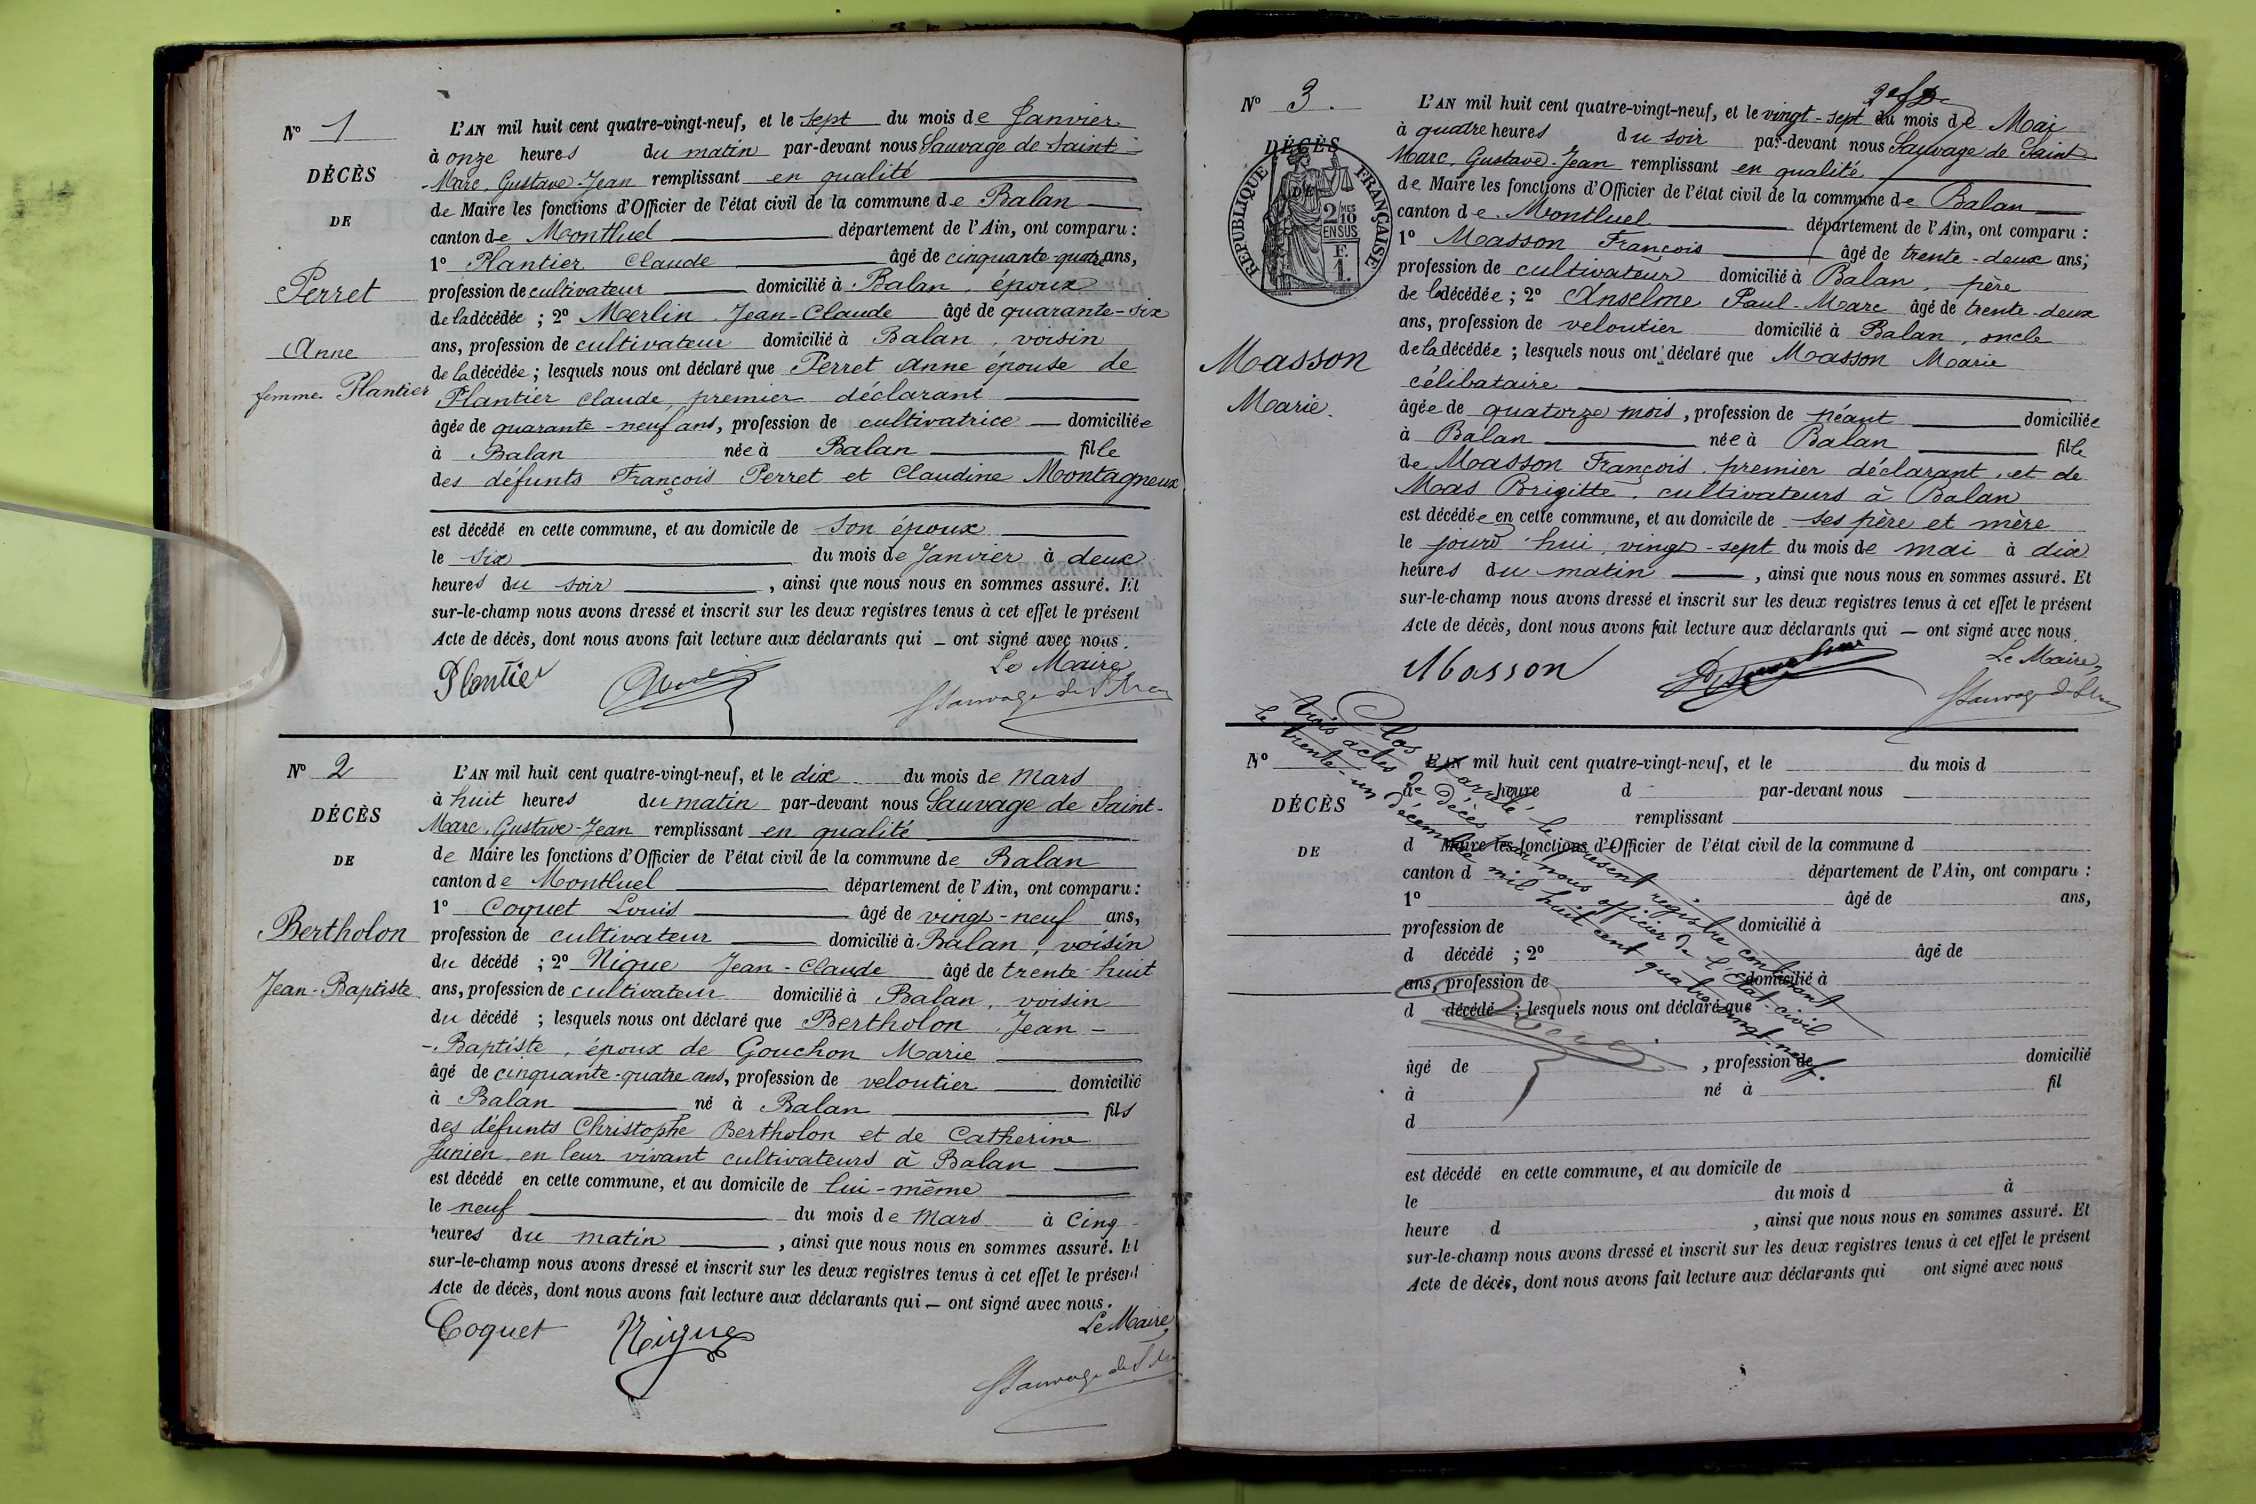 N° 1
DÉCÈS
DE
Perret
Anne
femme Plantier
L'AN mil huit cent quatre-vingt-neuf, et le sept du mois de Janvier
à onze heures du matin par-devant nous Sauvage de Saint-
-Marc, Gustave-Jean remplissant en qualité
de Maire les fonctions d'Officier de l'état civil de la commune de Balan
canton de Montluel département de l'Ain, ont comparu :
1° Plantier Claude âgé de cinquante-quatre ans,
profession de cultivateur domicilié à Balan, époux
de la décédée ; 2° Merlin Jean-Claude âgé de quarante-six
ans, profession de cultivateur domicilié à Balan, voisin
de la décédée ; lesquels nous ont déclaré que Perret Anne épouse de
Plantier Claude, premier déclarant
âgée de quarante-neuf ans, profession de cultivatrice domiciliée
à Balan née à Balan fille
des défunts François Perret et Claudine Montagneux
est décédé en cette commune, et au domicile de son époux
le six du mois de Janvier à deux
heures du soir , ainsi que nous nous en sommes assuré. Et
sur-le-champ nous avons dressé et inscrit sur les deux registres tenus à cet effet le présent
Acte de décès, dont nous avons fait lecture aux déclarants qui — ont signé avec nous.
Le Maire,
Plantier
Sauvage de St Marc
N° 2
DÉCÈS
DE
Bertholon
Jean-Baptiste
L'AN mil huit cent quatre-vingt-neuf, et le dix du mois de Mars
à huit heures du matin par-devant nous Sauvage de Saint-
Marc, Gustave-Jean remplissant en qualité
de Maire les fonctions d'Officier de l'état civil de la commune de Balan
canton de Montluel département de l'Ain, ont comparu :
1° Coquet Louis âgé de vingt-neuf ans,
profession de cultivateur domicilié à Balan, voisin
du décédé ; 2° Nigue Jean-Claude âgé de trente-huit
ans, profession de cultivateur domicilié à Balan, voisin
du décédé ; lesquels nous ont déclaré que Bertholon Jean-
-Baptiste, époux de Gouchon Marie
âgé de cinquante-quatre ans, profession de veloutier domicilié
à Balan né à Balan fils
des défunts Christophe Bertholon et de Catherine
Junien en leur vivant cultivateurs à Balan
est décédé en cette commune, et au domicile de lui-même
le neuf du mois de Mars à cinq
heures du matin , ainsi que nous nous en sommes assuré. Et
sur-le-champ nous avons dressé et inscrit sur les deux registres tenus à cet effet le présent
Acte de décès, dont nous avons fait lecture aux déclarants qui — ont signé avec nous.
Le Maire,
Coquet Nigue
Sauvage de St Marc
N° 3.
DÉCÈS
DE
RÉPUBLIQUE FRANÇAISE
2/10 MES
EN SUS
F.
1.
Masson
Marie.
L'AN mil huit cent quatre-vingt-neuf, et le vingt-sept du mois de Mai
à quatre heures du soir par-devant nous Sauvage de Saint-
Marc, Gustave-Jean remplissant en qualité
de Maire les fonctions d'Officier de l'état civil de la commune de Balan
canton de Montluel département de l'Ain, ont comparu :
1° Masson François âgé de trente-deux ans,
profession de cultivateur domicilié à Balan, père
de la décédée ; 2° Anselme Paul-Marc âgé de trente-deux
ans, profession de veloutier domicilié à Balan, oncle
de la décédée ; lesquels nous ont déclaré que Masson Marie
célibataire
âgée de quatorze mois, profession de néant domiciliée
à Balan née à Balan fille
de Masson François, premier déclarant, et de
Mas Brigitte, cultivateurs à Balan
est décédée en cette commune, et au domicile de ses père et mère
le jourd'hui, vingt-sept du mois de mai à dix
heures du matin , ainsi que nous nous en sommes assuré. Et
sur-le-champ nous avons dressé et inscrit sur les deux registres tenus à cet effet le présent
Acte de décès, dont nous avons fait lecture aux déclarants qui — ont signé avec nous.
Le Maire,
Masson
Sauvage de St Marc
Clos et arrêté le présent registre contenant
trois actes de décès par nous officier de l'État-civil
le trente-un décembre mil huit cent quatre-vingt-neuf.
N°
DÉCÈS
DE
L'AN mil huit cent quatre-vingt-neuf, et le du mois d
à heure d par-devant nous
remplissant
d Maire les fonctions d'Officier de l'état civil de la commune d
canton d département de l'Ain, ont comparu :
1° âgé de ans,
profession de domicilié à
d décédé ; 2° âgé de
ans, profession de domicilié à
d décédé ; lesquels nous ont déclaré que
âgé de , profession de domicilié
à né à fil
d
est décédé en cette commune, et au domicile de
le du mois d à
heure d , ainsi que nous nous en sommes assuré. Et
sur-le-champ nous avons dressé et inscrit sur les deux registres tenus à cet effet le présent
Acte de décès, dont nous avons fait lecture aux déclarants qui ont signé avec nous